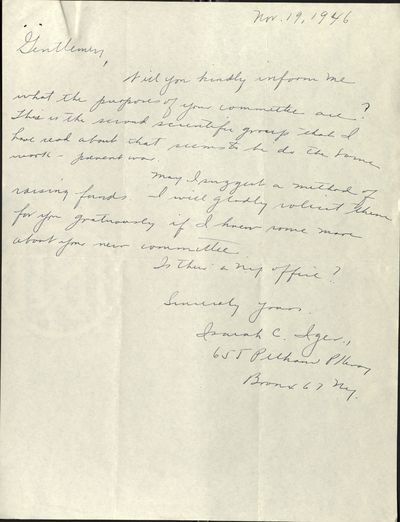 Nov. 19, 1946
Gentlemen,
Will you kindly inform me
what the purposes of your committee are?
This is the second scientific group that I
have read about that seems to be do the same
work - prevent war.
May I suggest a method of
raising funds I will gladly solicit them
for you gratuously if I knew some more
about your new committee
Is there a ny office?
Sincerely yours.
Isaiah C. Iger.,
655 Pelham Pkway
Bronx 67 Ny.